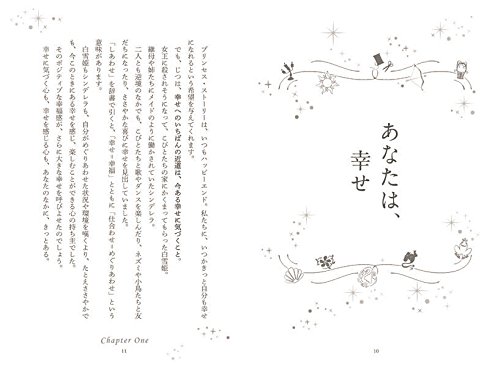 あなたは、
幸せ
10
プリンセス・ストーリーは、いつもハッピーエンド。私たちに、いつかきっと自分も幸せ
になれるという希望を与えてくれます。
でも、じつは、幸せへのいちばんの近道は、今ある幸せに気づくこと。
女王に殺されそうになって、こびとたちの家にかくまってもらった白雪姫。
継母や姉たちにメイドのように働かされていたシンデレラ。
二人とも逆境のなかでも、こびとたちと歌やダンスを楽しんだり、ネズミや小鳥たちと友
だちになったり、ささやかな喜びに幸せを見出していました。
「しあわせ」を辞書で引くと、「幸せ=幸福」とともに「仕合わせ=めぐりあわせ」という
意味があります。
白雪姫もシンデレラも、自分がめぐりあわせた状況や環境を嘆くより、たとえささやかで
も、今このときにある幸せを感じ、楽しむことができる心の持ち主でした。
そのポジティブな幸福感が、さらに大きな幸せを呼びよせたのでしょう。
幸せに気づく心も、幸せを感じる心も、あなたのなかに、きっとある。
Chapter One
11